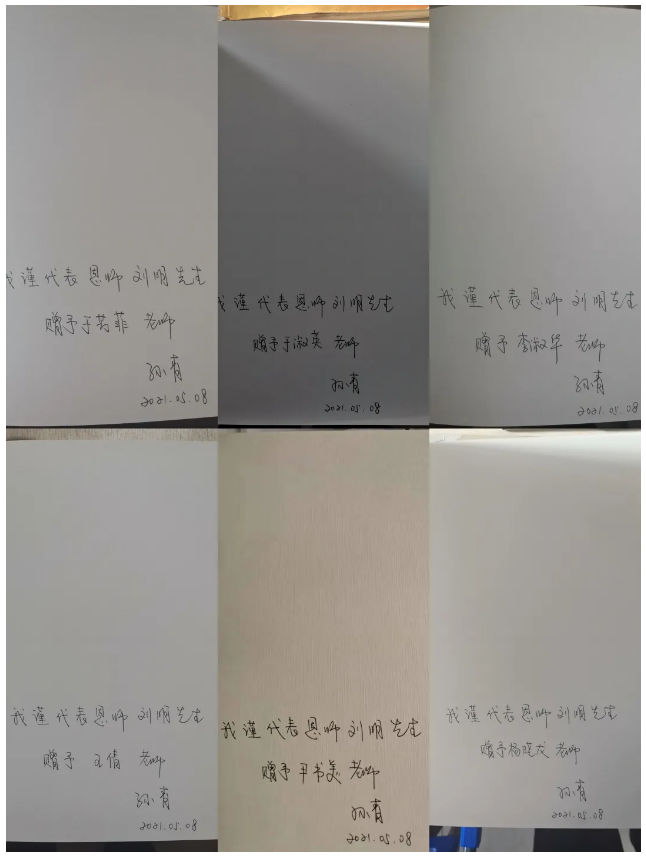 我谨代表恩师刘明先生
赠予于芳菲 老师
孙青
2021.05.08
我谨代表恩师刘明先生
赠予于淑英 老师
孙青
2021.05.08
我谨代表恩师刘明先生
赠予 李淑华 老师
孙青
2021.05.08
我谨代表恩师 刘明先生
赠予 王倩 老师
孙青
2021.05.08
我谨代表恩师刘明先生
赠予 老师
孙青
2021.05.08
我谨代表恩师刘明先生
赠予杨晓龙 老师
孙青
2021.05.08